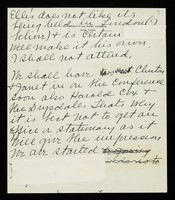 Ellis does not like its
being held in London(?)
& is certain
will make it his own.
I shall not attend.
We shall have Clinton
& Janet in on the Conference
soon also Harold Cox &
the Drysdales. That's why
it is best not to get an
office or stationary as it
will give the impression
we are started